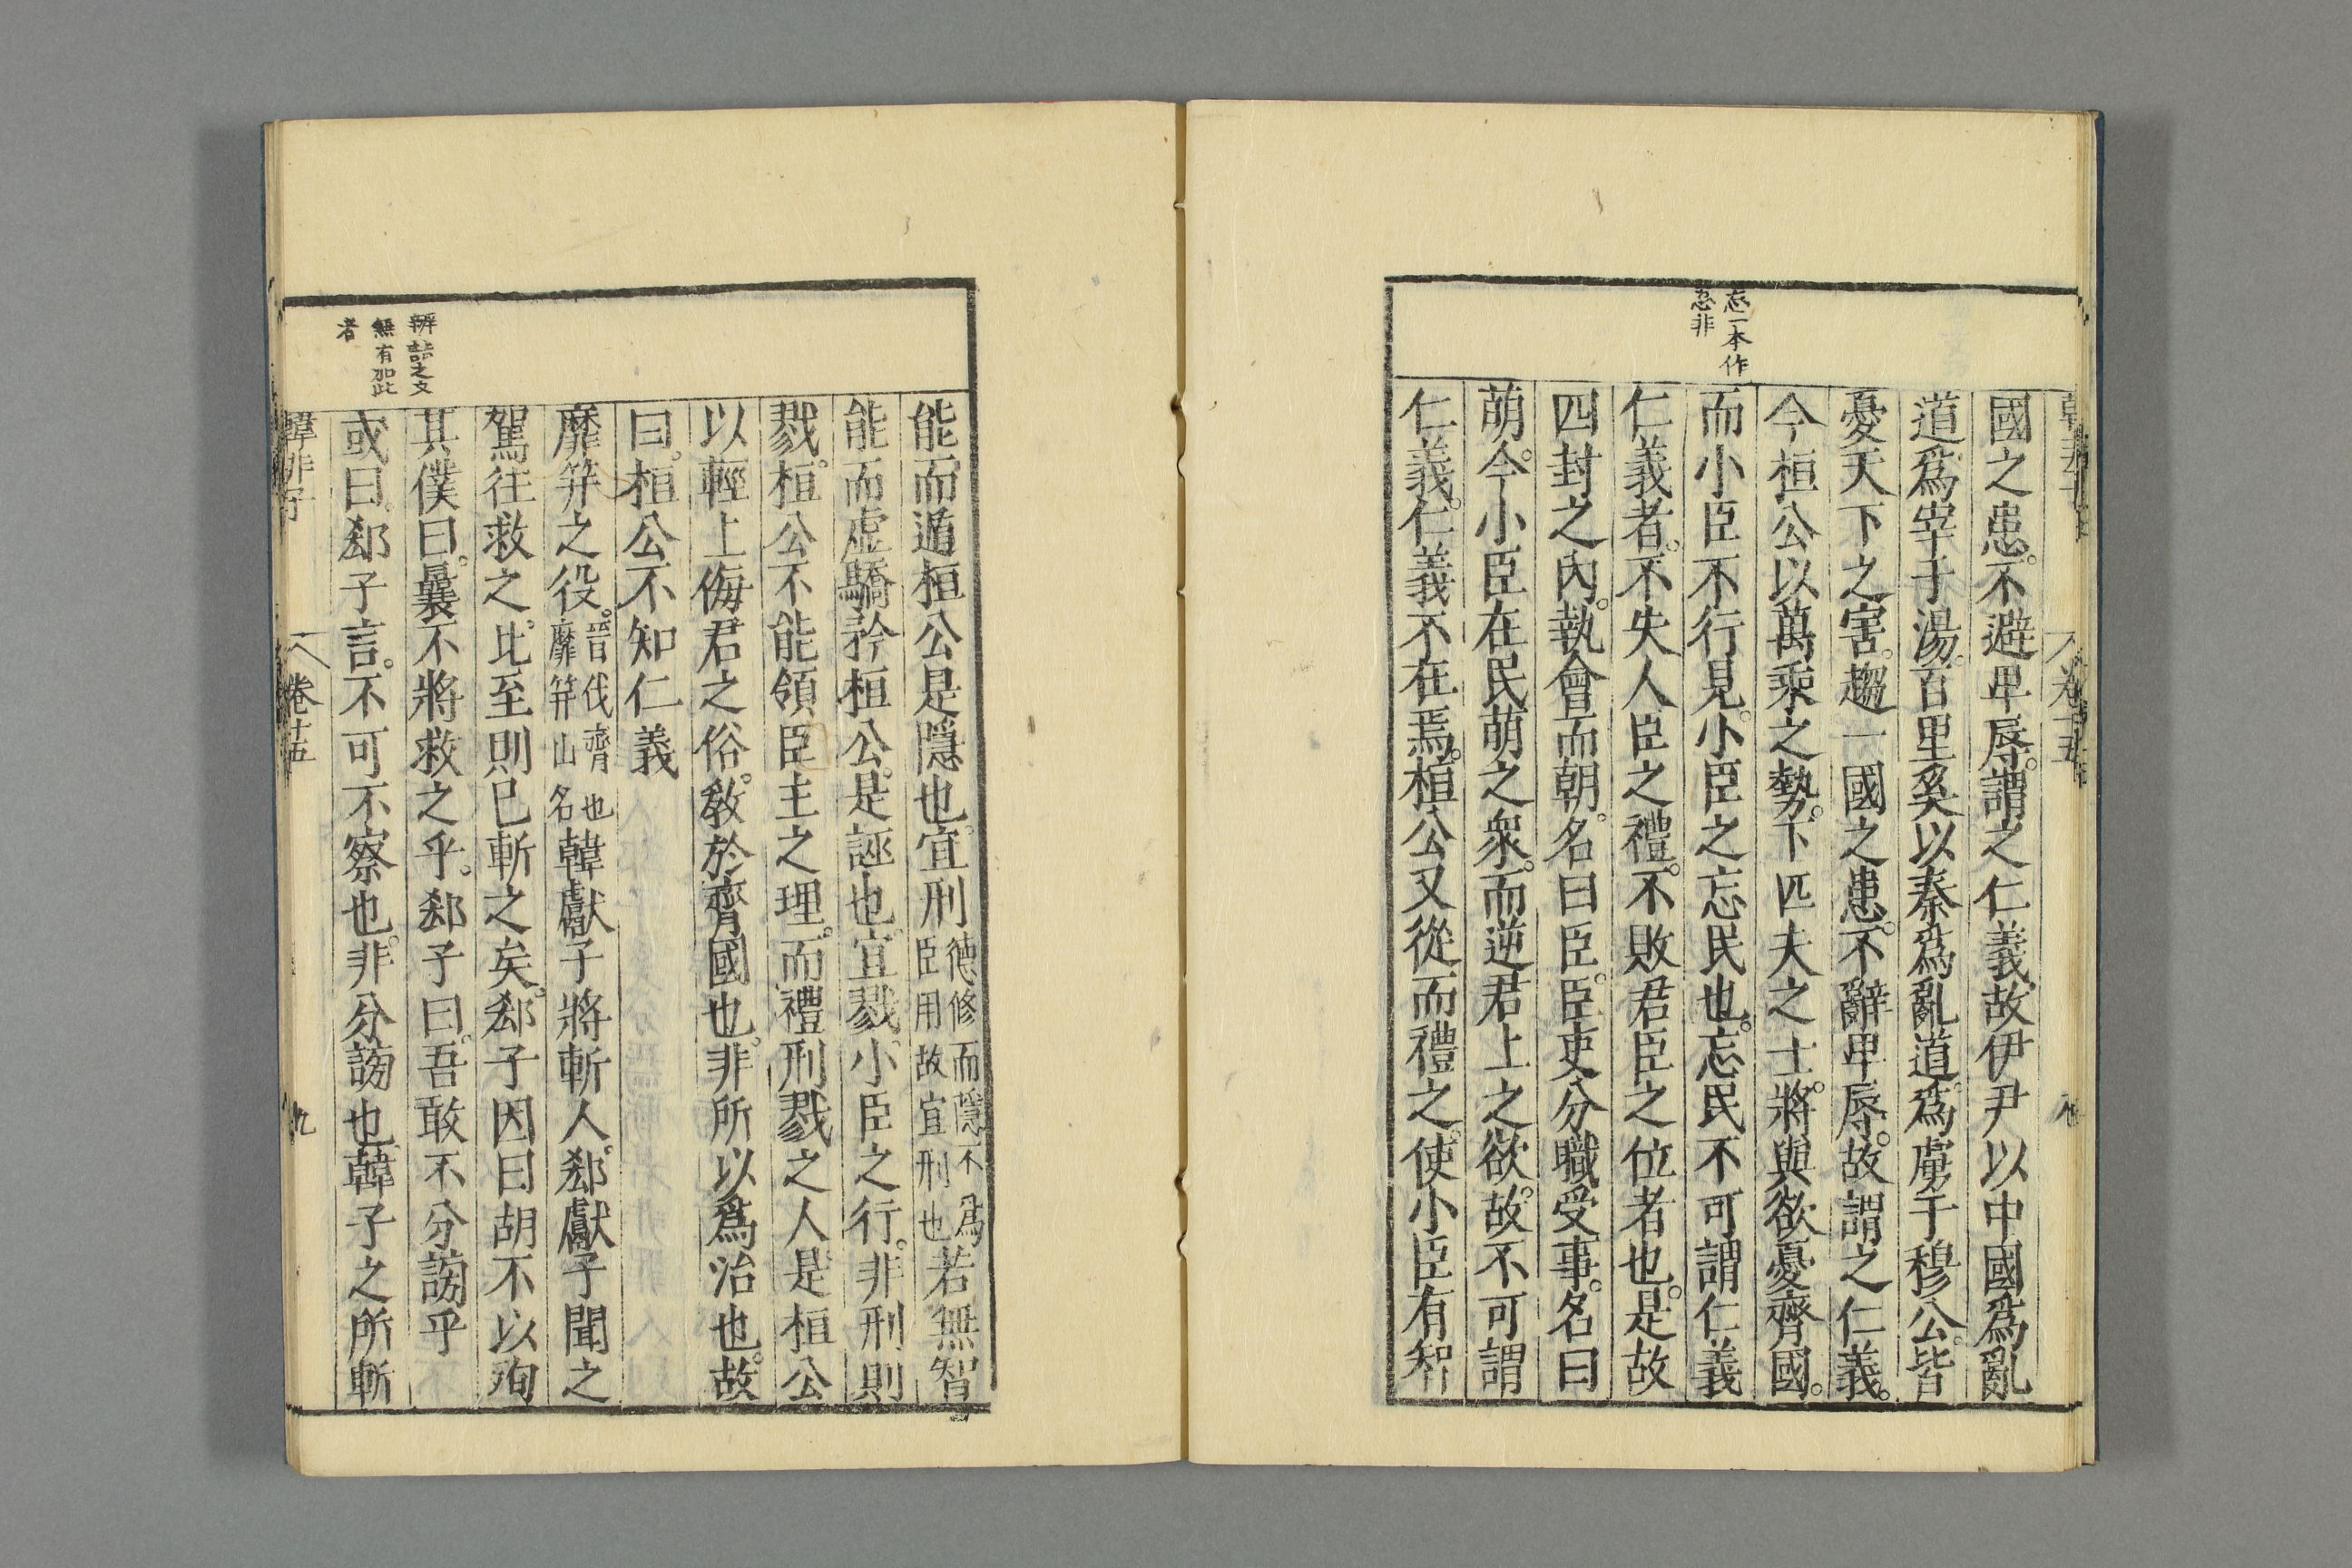 卷十五
忘一本作
忽非
國之患。不避卑辱。謂之仁義。故伊尹以中國爲亂
道爲宰于湯。百里奚以秦爲亂道。爲虜于穆公。皆
憂天下之害。趨一國之患。不辭卑辱。故謂之仁義。
今桓公以萬乘之勢。下匹夫之士。將與欲憂齊國。
而小臣不行見。小臣之忘民也。忘民不可謂仁義
仁義者。不失人臣之禮。不敗君臣之位者也。是故
四封之內。執會而朝。名曰臣。臣吏分職受事。名曰
萌。今小臣在民萌之衆。而逆君上之欲。故不可謂
仁義。仁義不在焉。桓公又從而禮之。使小臣有智
能而遁桓公。是隱也。宜刑德修而隱不爲臣用故宜刑也若無智
能而虛驕矜桓公。是誣也。宜戮。小臣之行。非刑則
戮。桓公不能領臣主之理。而禮刑戮之人。是桓公
以輕上侮君之俗。敎於齊國也。非所以爲治也。故
曰。桓公不知仁義
靡笄之役。晉伐齊也靡笄山名韓獻子將斬人。郄獻子聞之
駕往救之。比至則已斬之矣。郄子因曰胡不以殉
其僕曰。曩不將救之乎。郄子曰。吾敢不分謗乎
辨詰之文
無有加此
者
或曰。郄子言。不可不察也。非分謗也。韓子之所斬
韓非子 卷十五 九